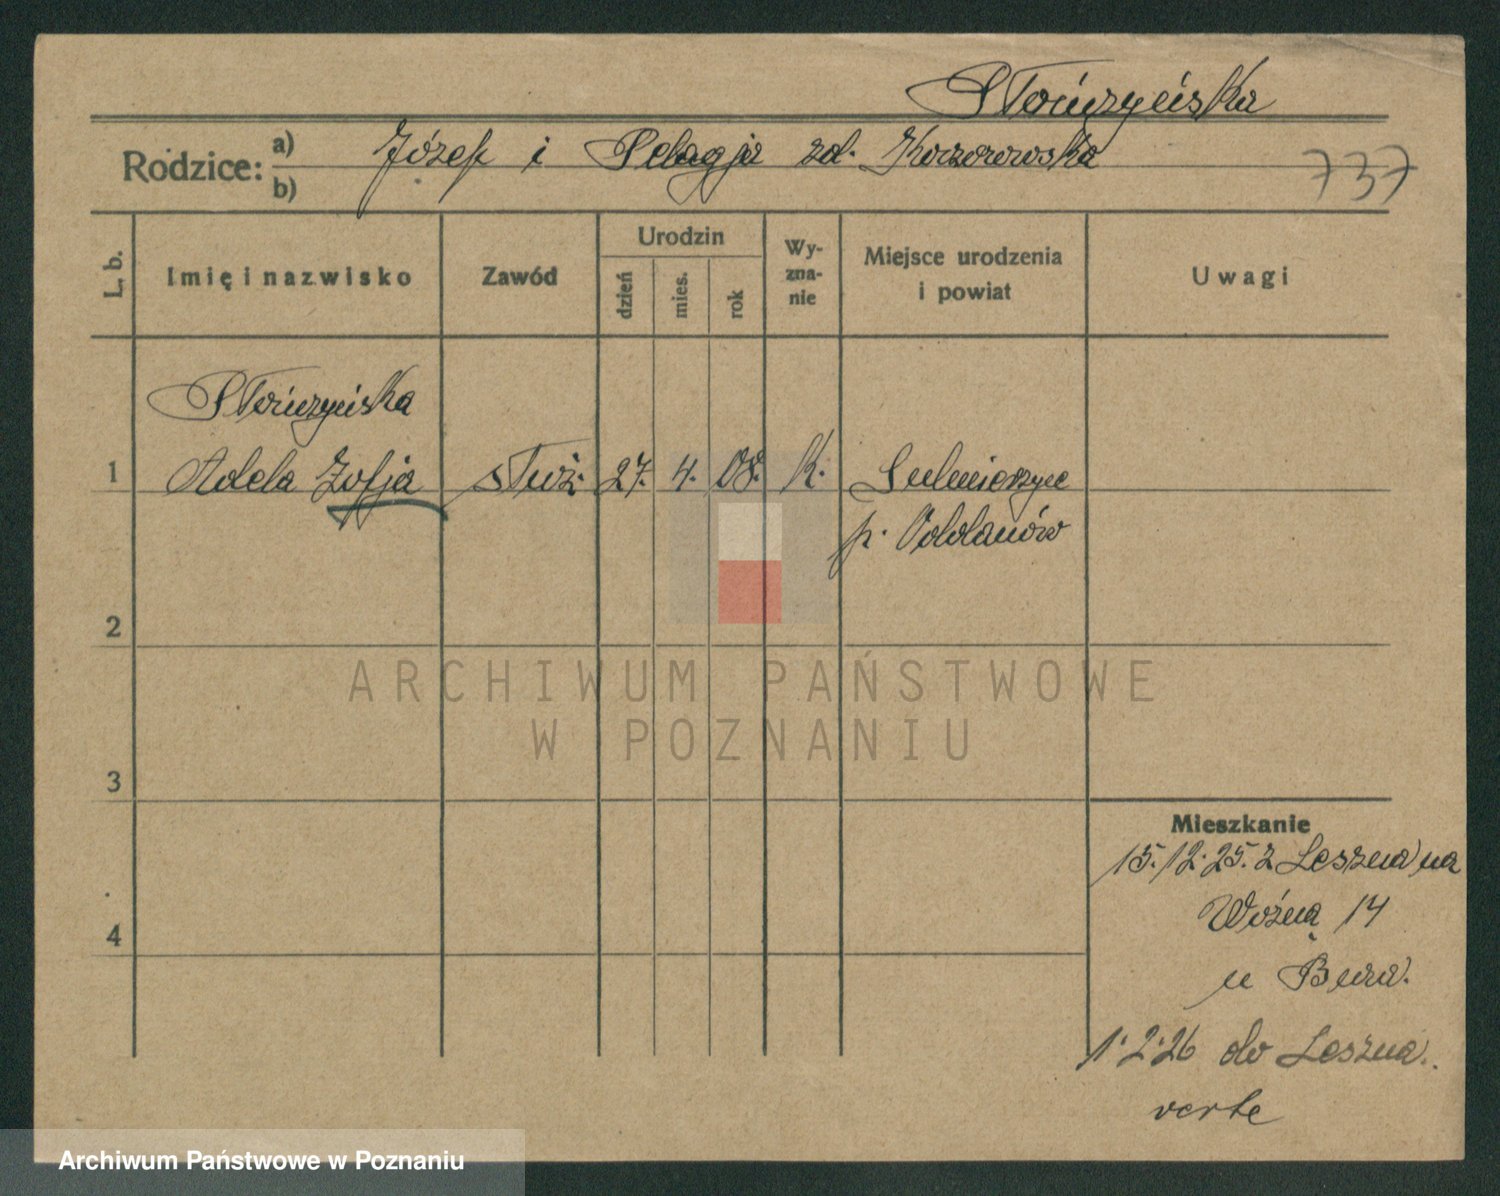 Słończyńska
Rodzice: a) Józef i Pelagja zd. Kaczorowska
b)
737
L. b.
Imię i nazwisko
Zawód
Urodzin
dzień
mies.
rok
Wy-
zna-
nie
Miejsce urodzenia
i powiat
Uwagi
Słończyńska
1 Adela Zofja służ. 27. 4. 08. k. Sulmierzyce
p. Odolanów
2
3
4
Mieszkanie
15.12.25. z Leszna na
Woźną 14
u
1.2.26 do Leszna.
verte
ARCHIWUM PAŃSTWOWE
W POZNANIU
Archiwum Państwowe w Poznaniu